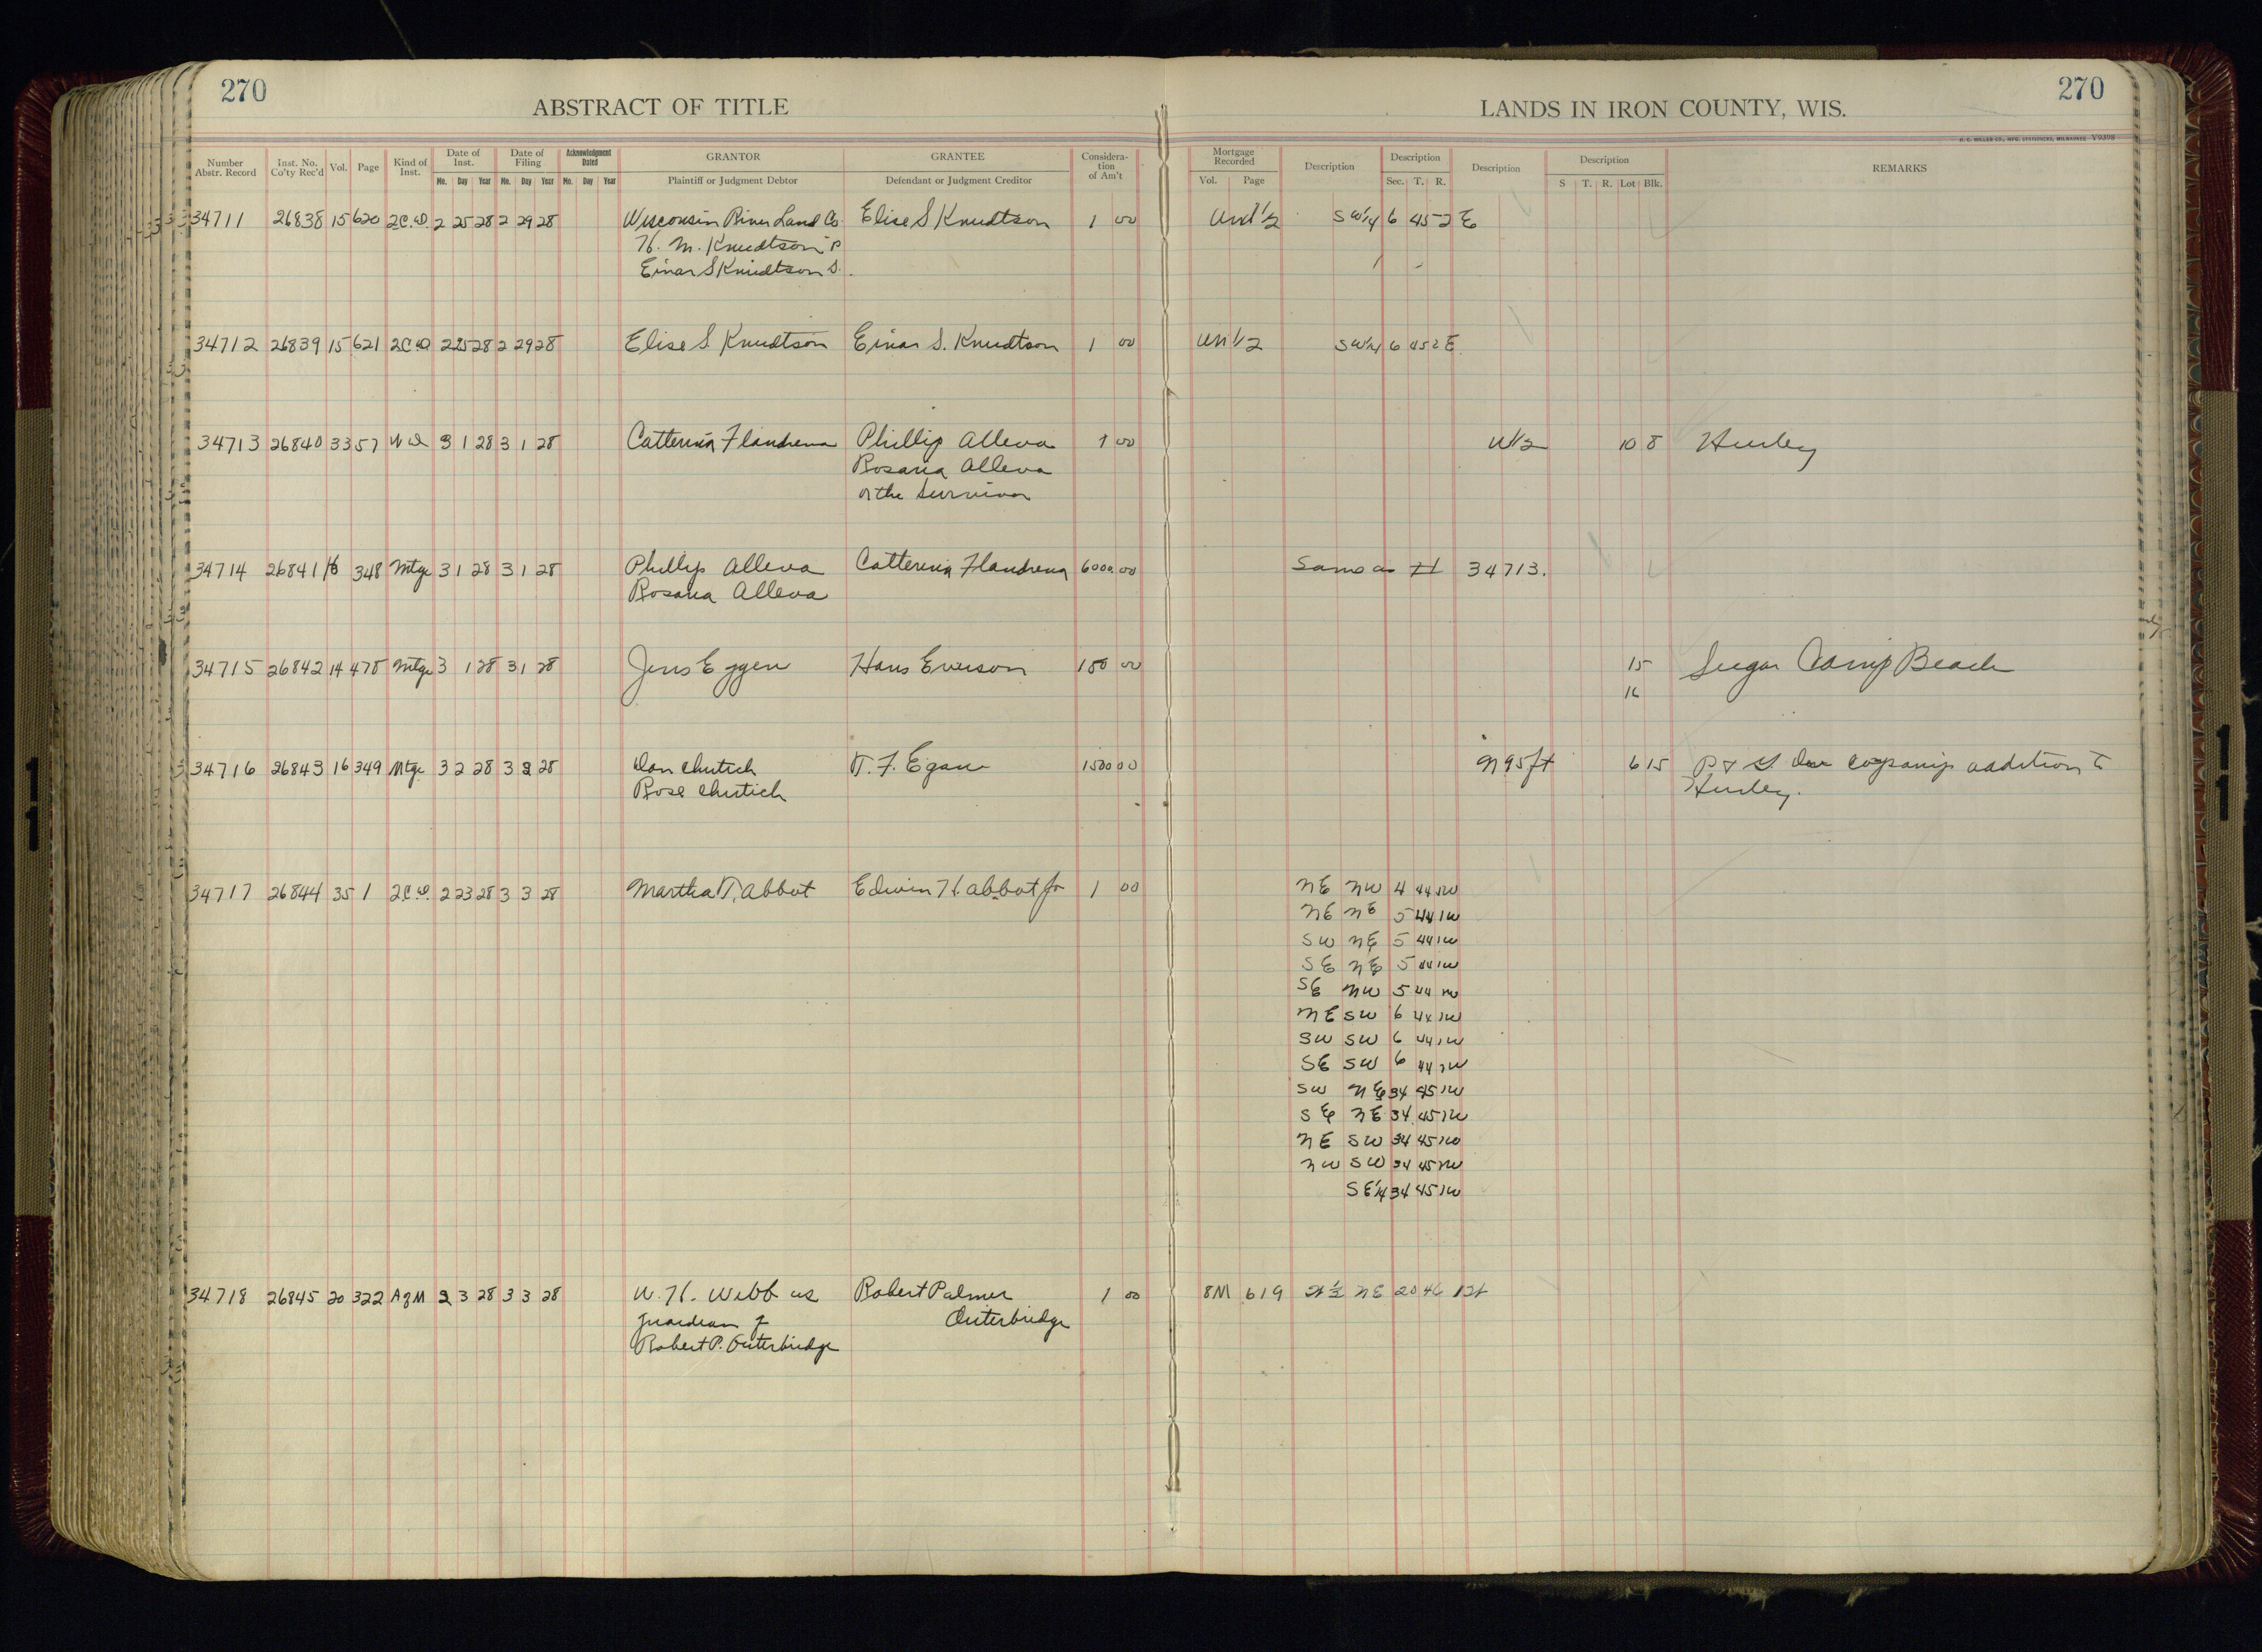 270
ABSTRACT OF TITLE
LANDS IN IRON COUNTY, WIS.
270
H. C. MILLER CO., MFG. STATIONERS, MILWAUKEE V9398
Number Abstr. Record Inst. No. Co'ty Rec'd Vol. Page Kind of Inst. Date of Inst. Mo. Day Year Date of Filing Mo. Day Year Acknowledgment Dated Mo. Day Year GRANTOR Plaintiff or Judgment Debtor GRANTEE Defendant or Judgment Creditor Considera-tion of Am't Mortgage Recorded Vol. Page Description Description Sec. T. R. Description Description S T. R. Lot Blk. REMARKS
34711 26838 15 620 2C.D. 2 25 28 2 29 28 Wisconsin River Land Co. Elise S Knudtson 1 00 Und 1/2 SW1/4 6 45 2 E
H. M. Knudtson P
Einar S Knudtson S.
34712 26839 15 621 2C.D. 2 25 28 2 29 28 Elise S. Knudtson Einar S. Knudtson 1 00 Un 1/2 SW1/4 6 45 2 E
34713 26840 33 57 WD 3 1 28 3 1 28 Catterina Flandrena Phillip Alleva 1 00 W1/2 10 8 Hurley
Rosaria Alleva
or the Survivor
34714 26841 16 348 Mtge 3 1 28 3 1 28 Phillip Alleva Catterina Flandrena 6000 00 Same as # 34713.
Rosaria Alleva
34715 26842 14 478 Mtge 3 1 28 3 1 28 Jens Eggen Hans Everson 150 00 15 Sugar Camp Beach
16
34716 26843 16 349 Mtge 3 2 28 3 2 28 Dan T. F. Egan 1500 00 N 95 ft 6 15 P & G company addition to
Rose Hurley.
34717 26844 35 1 2C.D. 2 23 28 3 3 28 Martha T. Abbot Edwin H. Abbot Jr 1 00 NE NW 4 44 1W
NE NE 5 44 1W
SW NE 5 44 1W
SE NE 5 44 1W
SE NW 5 44 1W
NE SW 6 44 1W
SW SW 6 44 1W
SE SW 6 44 1W
SW NE 34 45 1W
SE NE 34 45 1W
NE SW 34 45 1W
NW SW 34 45 1W
SE1/4 34 45 1W
34718 26845 20 322 A of M 2 3 28 3 3 28 W. H. Webb as Robert Palmer 1 00 8M 619 NE 20 46
guardian of Outerbridge
Robert P. Outerbridge